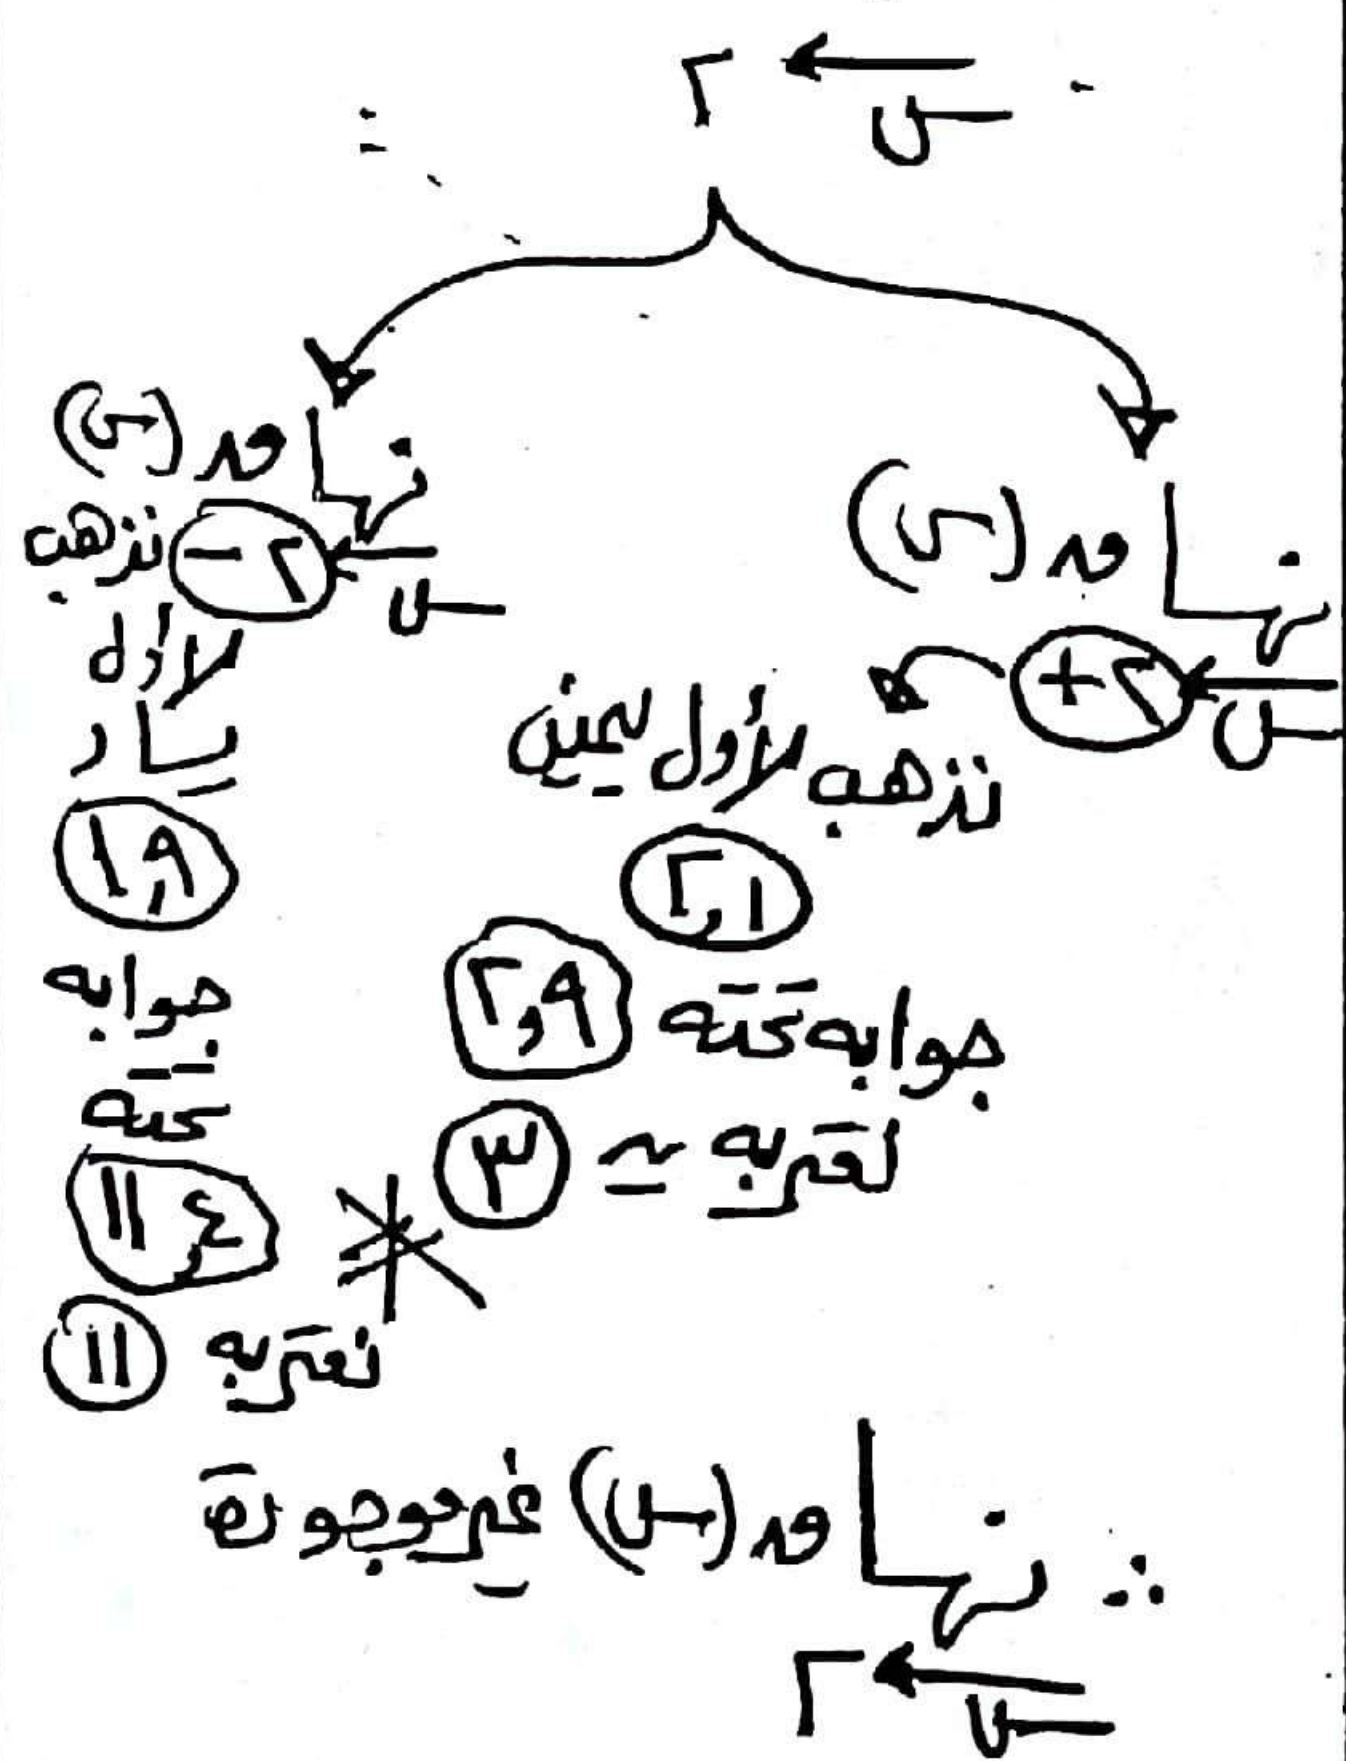 س ← ٢
نهـا ق(س)
س ← ٢+
نذهب لأول يمين
٢,١
جوابه تحته ٢,٩
نقربه ≈ ٣
نهـا ق(س)
س ← ٢-
نذهب
لأول
يسار
١,٩
جوابه
تحته
١١,٤
نقربه ١١
∴ نهـا ق(س) غير موجودة
س ← ٢